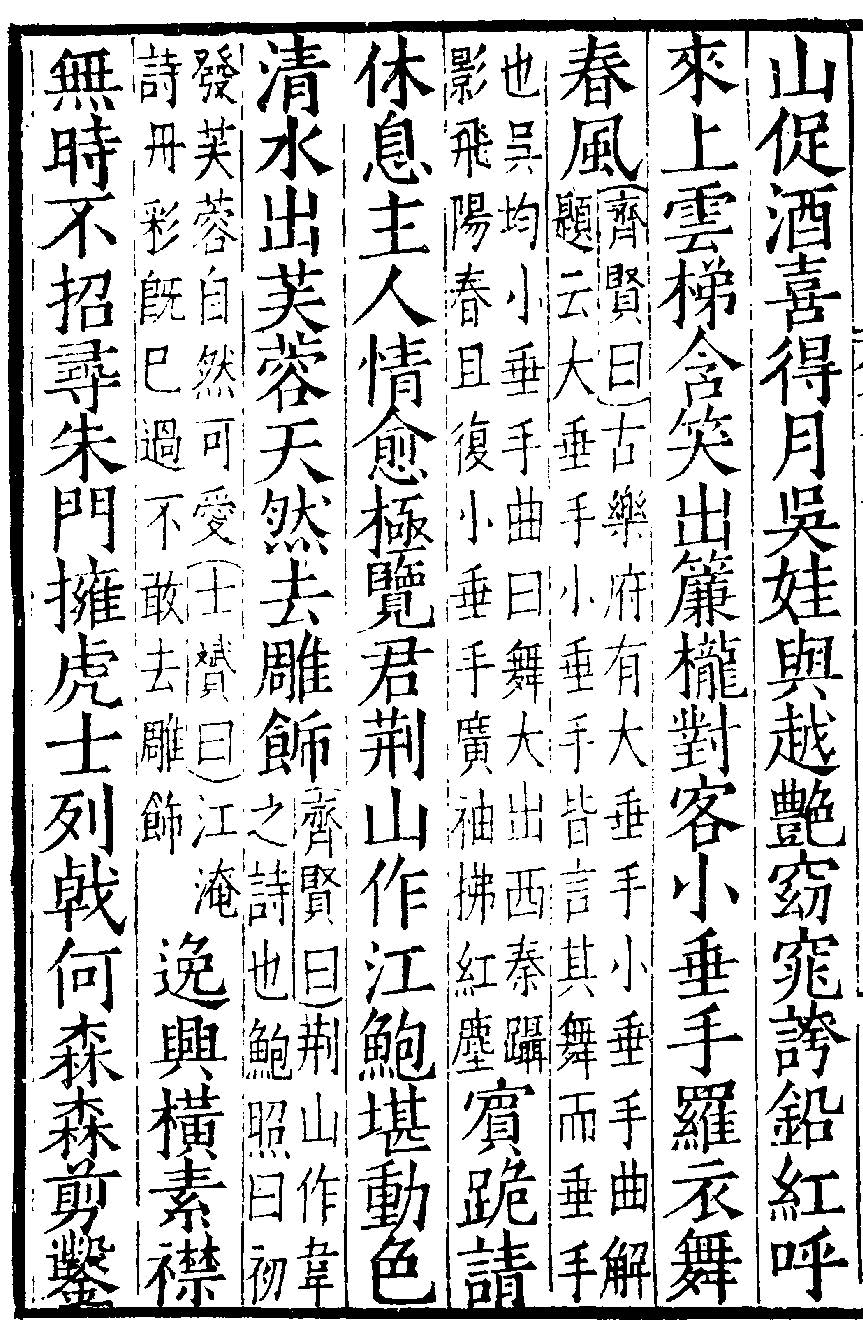 山促酒喜得月吳娃與越艷窈窕誇鉛紅呼
來上雲梯含笑出簾櫳對客小垂手羅衣舞
春風
(齊賢曰)古樂府有大垂手小垂手曲解
題云大垂手小垂手皆言其舞而垂手
也吳均小垂手曲曰舞大出西秦躡
影飛陽春且復小垂手廣袖拂紅塵
賓跪請
休息主人情愈極覽君荆山作江鮑堪動色
清水出芙蓉天然去雕飾
(齊賢曰)荆山作韋
之詩也鮑照曰初
發芙蓉自然可愛(士贇曰)江淹
詩冊彩旣巳過不敢去雕飾
逸興橫素襟
無時不招尋朱門擁虎士列戟何森森剪鑿